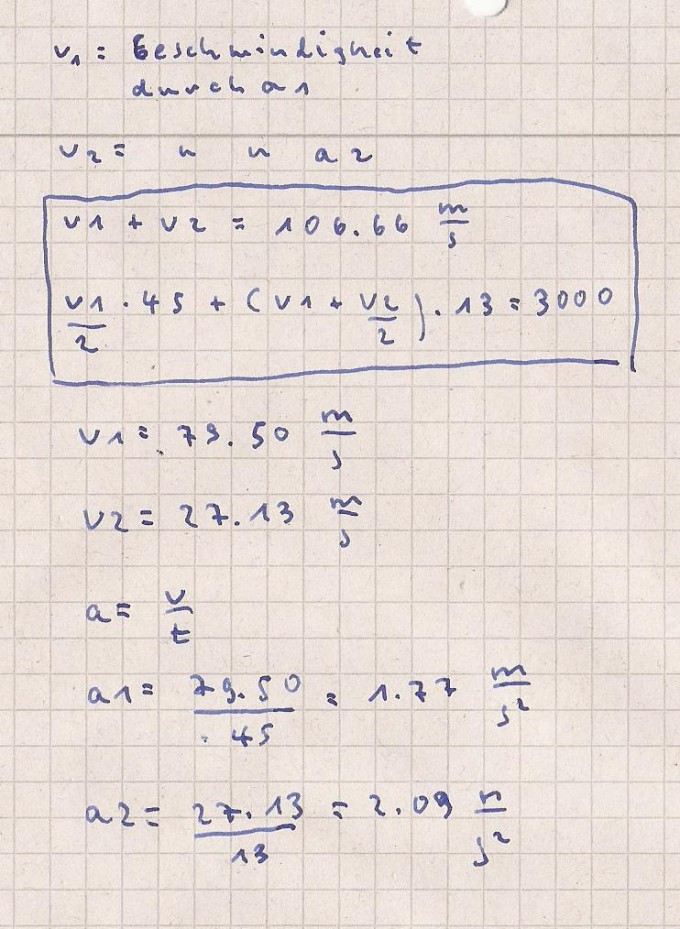 v₁ = Geschwindigkeit
durch a1
v₂ = " " a2
v1 + v2 = 106.66 m/s
v1/2 · 45 + (v1 + v2/2) · 13 = 3000
v1 = 79.50 m/s
v2 = 27.13 m/s
a = v/t
a1 = 79.50/45 = 1.77 m/s²
a2 = 27.13/13 = 2.09 m/s²